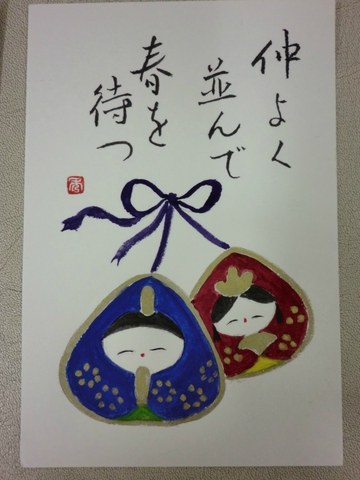 仲よく
並んで
春を
待つ